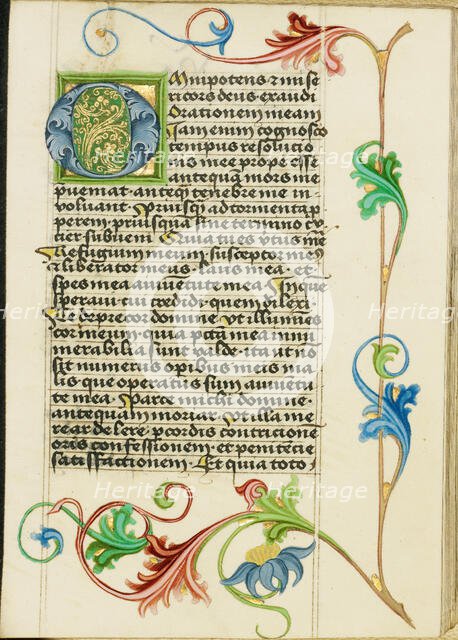 Omnipotens & mise
ricors deus exaudi
Orationem meam
Iam enim cognosco
tempus resolucio
nis mee prope esse
anteq̃ mors me
pueniat. anteq̃ tenebre me in
voluant. Priusq̃ ad tormenta p
perem. priusqua sine termino cru
cier subueni
Refugium meum susceptor
& liberator meus
spes mea a iuuentute mea Inque
speraui cui credidi quem dilexi
Te deprecor domine vt illumies
cor meum. quia pctā mea innu
merabilia sunt valde. ita ut no
sit numerus operibus meis ma
lis que operatus sum a iuuetu
te mea. Parce michi domine
antequam moriar. vt illa me
rear delere. p cordis contricione
oris confessionem. et penitecie
satisfactionem. Et quia toto
Heritage
Heritage
Heritage
Heritage
Heritage
Heritage
Heritage
Heritage